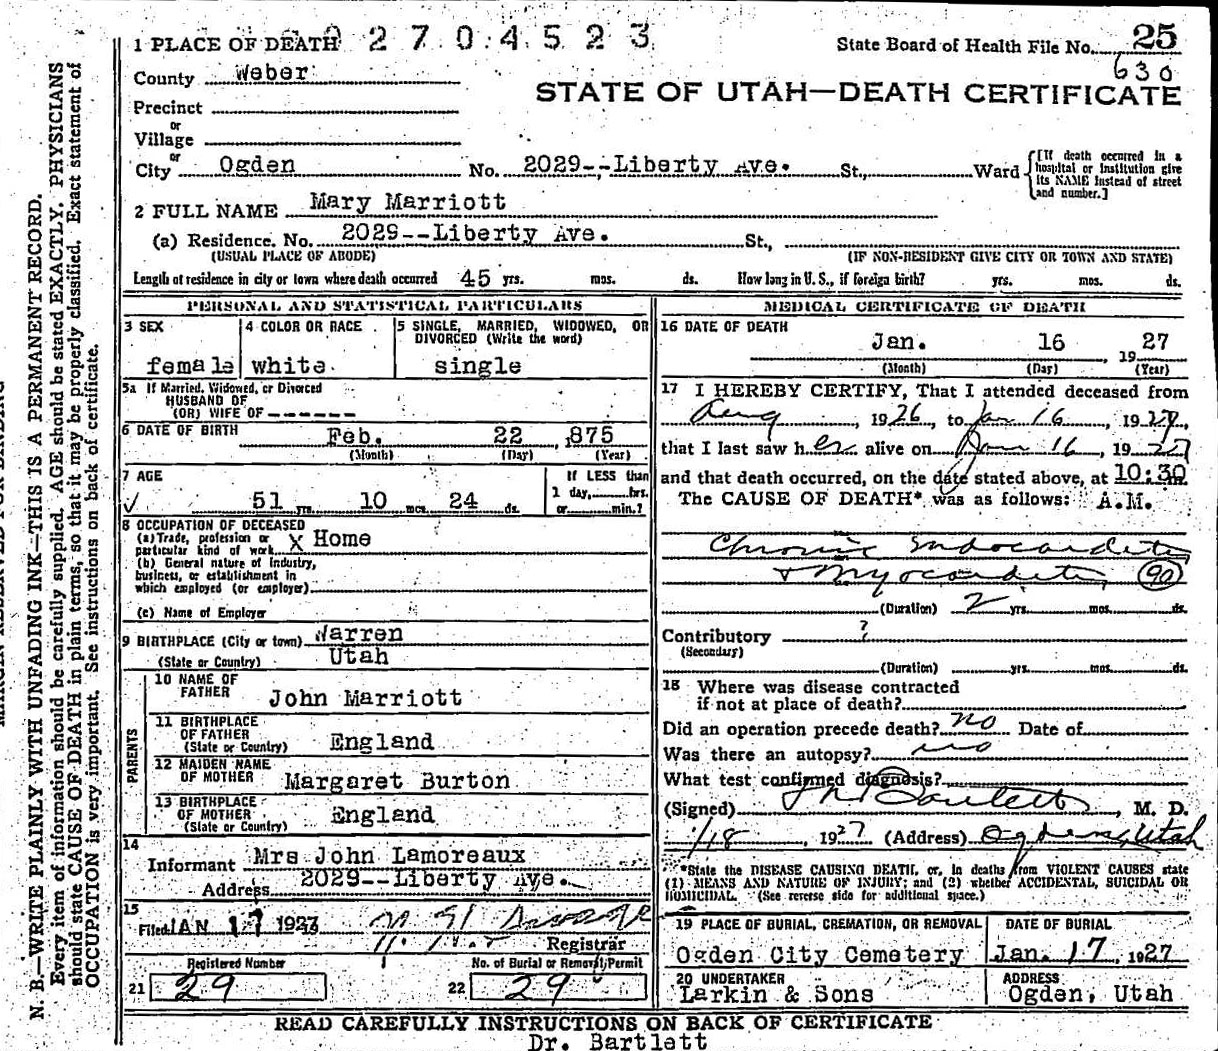 1 PLACE OF DEATH 2 7 0 4 5 2 3
State Board of Health File No. 25
County Weber
630
STATE OF UTAH—DEATH CERTIFICATE
Precinct
or
Village
or
City Ogden No. 2029--Liberty Ave. St., Ward
[If death occurred in a hospital or institution give its NAME instead of street and number.]
2 FULL NAME Mary Marriott
(a) Residence. No. 2029--Liberty Ave. St.,
(USUAL PLACE OF ABODE) (IF NON-RESIDENT GIVE CITY OR TOWN AND STATE)
Length of residence in city or town where death occurred 45 yrs. mos. ds. How long in U.S., if foreign birth? yrs. mos. ds.
PERSONAL AND STATISTICAL PARTICULARS
3 SEX
female
4 COLOR OR RACE
white
5 SINGLE, MARRIED, WIDOWED, OR
DIVORCED (Write the word)
single
5a If Married, Widowed, or Divorced
HUSBAND OF
(OR) WIFE OF ------
6 DATE OF BIRTH
Feb. 22 ,875
(Month) (Day) (Year)
7 AGE
51 yrs. 10 mos. 24 ds.
If LESS than
1 day, hrs.
or min.?
8 OCCUPATION OF DECEASED
(a) Trade, profession or
particular kind of work X Home
(b) General nature of industry,
business, or establishment in
which employed (or employer)
(c) Name of Employer
9 BIRTHPLACE (City or town) Warren
(State or Country) Utah
PARENTS
10 NAME OF
FATHER John Marriott
11 BIRTHPLACE
OF FATHER
(State or Country) England
12 MAIDEN NAME
OF MOTHER Margaret Burton
13 BIRTHPLACE
OF MOTHER
(State or Country) England
14
Informant Mrs John Lamoreaux
Address 2029--Liberty Ave.
15
Filed JAN 17 1927
Registrar
Registered Number
21 29
No. of Burial or Removal Permit
22 29
MEDICAL CERTIFICATE OF DEATH
16 DATE OF DEATH
Jan. 16 , 19 27
(Month) (Day) (Year)
17 I HEREBY CERTIFY, That I attended deceased from
Aug , 1926 to Jan 16 , 1927
that I last saw her alive on Jan 16 , 1927
and that death occurred, on the date stated above, at 10:30 m.
The CAUSE OF DEATH* was as follows: A.M.
Chronic Endocarditis
+ Myocarditis 90
(Duration) 2 yrs. mos. ds.
Contributory ?
(Secondary)
(Duration) yrs. mos. ds.
18 Where was disease contracted
if not at place of death?
Did an operation precede death? no Date of
Was there an autopsy? no
What test confirmed diagnosis?
(Signed) Bartlett , M. D.
1/18 , 1927 (Address) Ogden, Utah
*State the DISEASE CAUSING DEATH, or, in deaths from VIOLENT CAUSES state
(1) MEANS AND NATURE OF INJURY; and (2) whether ACCIDENTAL, SUICIDAL OR
HOMICIDAL. (See reverse side for additional space.)
19 PLACE OF BURIAL, CREMATION, OR REMOVAL
Ogden City Cemetery
DATE OF BURIAL
Jan. 17, 1927
20 UNDERTAKER
Larkin & Sons
ADDRESS
Ogden, Utah
READ CAREFULLY INSTRUCTIONS ON BACK OF CERTIFICATE
Dr. Bartlett
N. B.—WRITE PLAINLY WITH UNFADING INK—THIS IS A PERMANENT RECORD.
Every item of information should be carefully supplied. AGE should be stated EXACTLY. PHYSICIANS
should state CAUSE OF DEATH in plain terms, so that it may be properly classified. Exact statement of
OCCUPATION is very important. See instructions on back of certificate.